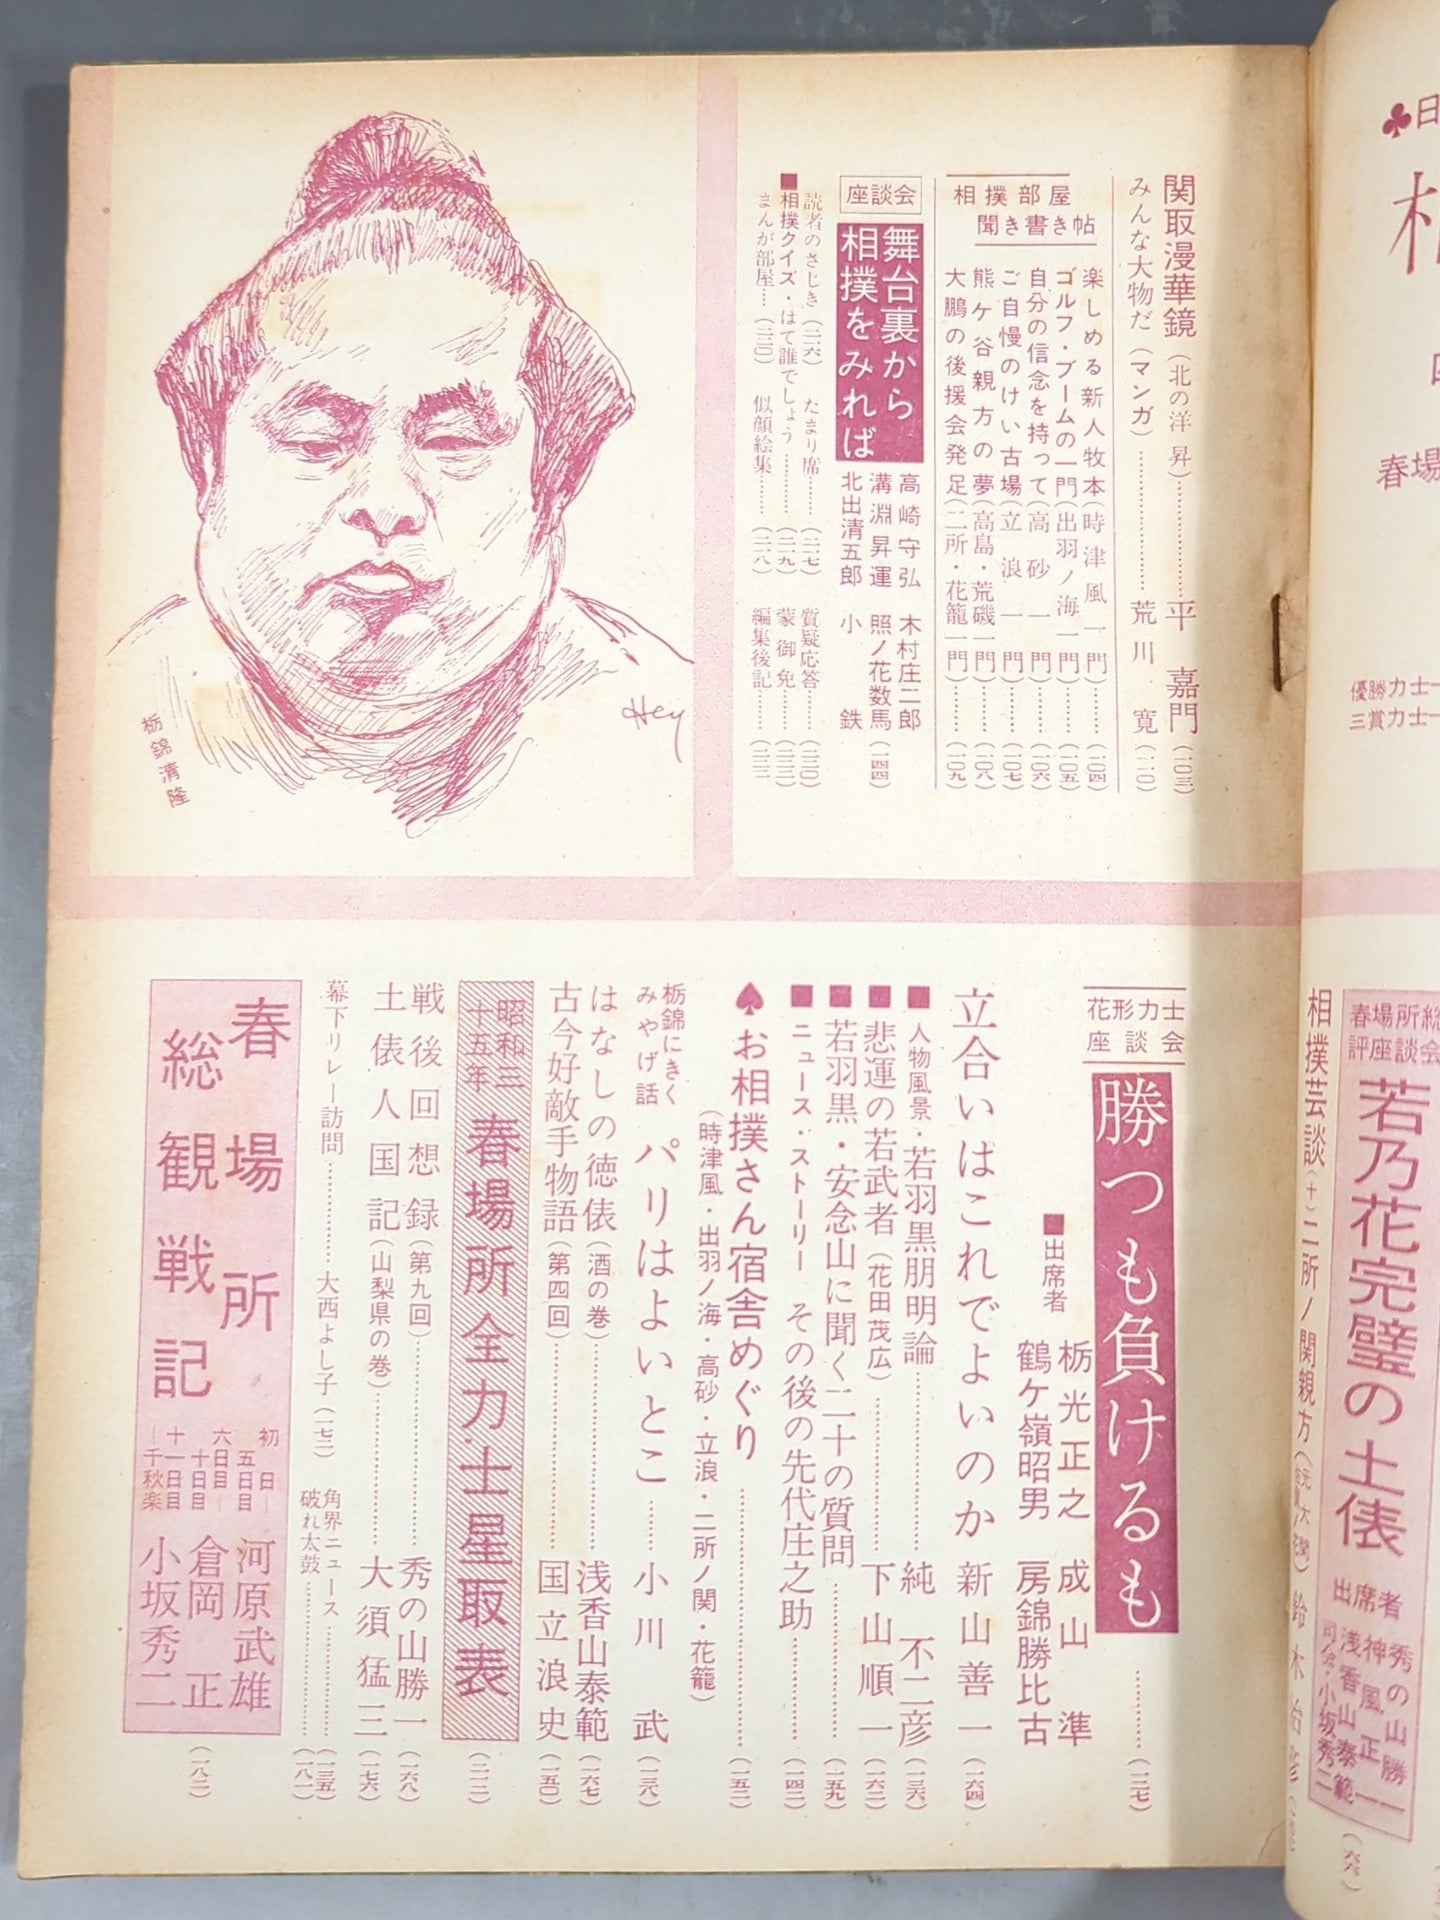 関取漫華鏡(北の洋 昇)…………平 嘉門(一〇三)
みんな大物だ(マンガ)…………荒川 寛(一一〇)
相撲部屋
聞き書き帖
楽しめる新人牧本(時津風一門)……(一〇四)
ゴルフ・ブームの一門(出羽ノ海一門)……(一〇五)
自分の信念を持って(高砂一門)……(一〇六)
ご自慢のけい古場(立浪一門)……(一〇七)
熊ケ谷親方の夢(高島・荒磯一門)……(一〇八)
大鵬の後援会発足(二所・花籠一門)……(一〇九)
座談会
舞台裏から
相撲をみれば
高崎守弘 木村庄二郎
溝淵昇運 照ノ花数馬(一四四)
北出清五郎 小鉄
読者のさじき(二一六) たまり席……(二一七) 質疑応答……(二二〇)
■相撲クイズ・はて誰でしょう……(二一九) 蒙御免……(二二二)
まんが部屋…(二三〇) 似顔絵集……(二一八) 編集後記……
Hey
栃錦清隆
花形力士
座談会
勝つも負けるも…………(一二七)
■出席者 栃光正之 成山 準
鶴ケ嶺昭男 房錦勝比古
立合いはこれでよいのか 新山善一(一六四)
■人物風景・若羽黒朋明論……………純 不二彦(一三六)
■悲運の若武者(花田茂広)……………下山順一(一六二)
■若羽黒・安念山に聞く二十の質問……………(一五九)
■ニュース・ストーリー その後の先代庄之助……………(一四二)
♠お相撲さん宿舎めぐり……………(一五二)
(時津風・出羽ノ海・高砂・立浪・二所ノ関・花籠)
栃錦にきく
みやげ話
パリはよいとこ……小川 武(一三八)
はなしの徳俵(酒の巻)……………浅香山泰範(一六七)
古今好敵手物語(第四回)……………国立浪史(一五〇)
昭和三
十五年
春場所全力士星取表(二一二)
戦後回想録(第九回)……………秀の山勝一(一六八)
土俵人国記(山梨県の巻)……………大須猛三(一七六)
幕下リレー訪問……………大西よし子(一七二)
角界ニュース……………(一三五)
破れ太鼓……………(一八一)
春場所
総観戦記
初日―
五日目 河原武雄
六日目―
十日目 倉岡 正(一八二)
十一日目
―千秋楽 小坂秀二
♣日
春場
優勝力士一
三賞力士一
春場所総
評座談会
若乃花完璧の土俵
出席者
秀の山勝一
神風正一
浅香山泰範
司会・小坂秀二
相撲芸談(十)二所ノ関親方
鈴木治彦